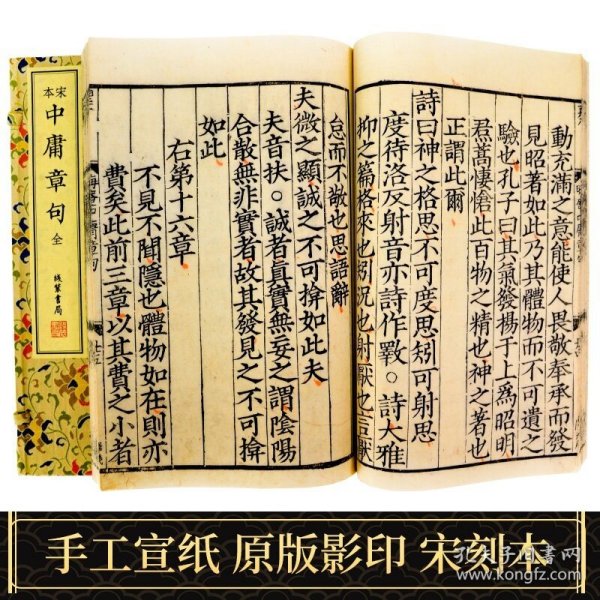 宋本
中庸章句 全
线装書局
動充滿之意能使人畏敬奉承而發
見昭著如此乃其體物而不可遺之
驗也孔子曰其氣發揚于上爲昭明
焄蒿悽愴此百物之精也神之著也
正謂此爾
詩曰神之格思不可度思矧可射思
度待洛反射音亦詩作斁○詩大雅
抑之篇格來也矧況也射厭也言厭
怠而不敬也思語辭
夫微之顯誠之不可揜如此夫
夫音扶○誠者真實無妄之謂陰陽
合散無非實者故其發見之不可揜
如此
右第十六章
不見不聞隱也體物如在則亦
費矣此前三章以其費之小者
手工宣纸 原版影印 宋刻本
孔夫子旧书网
www.kongfz.com